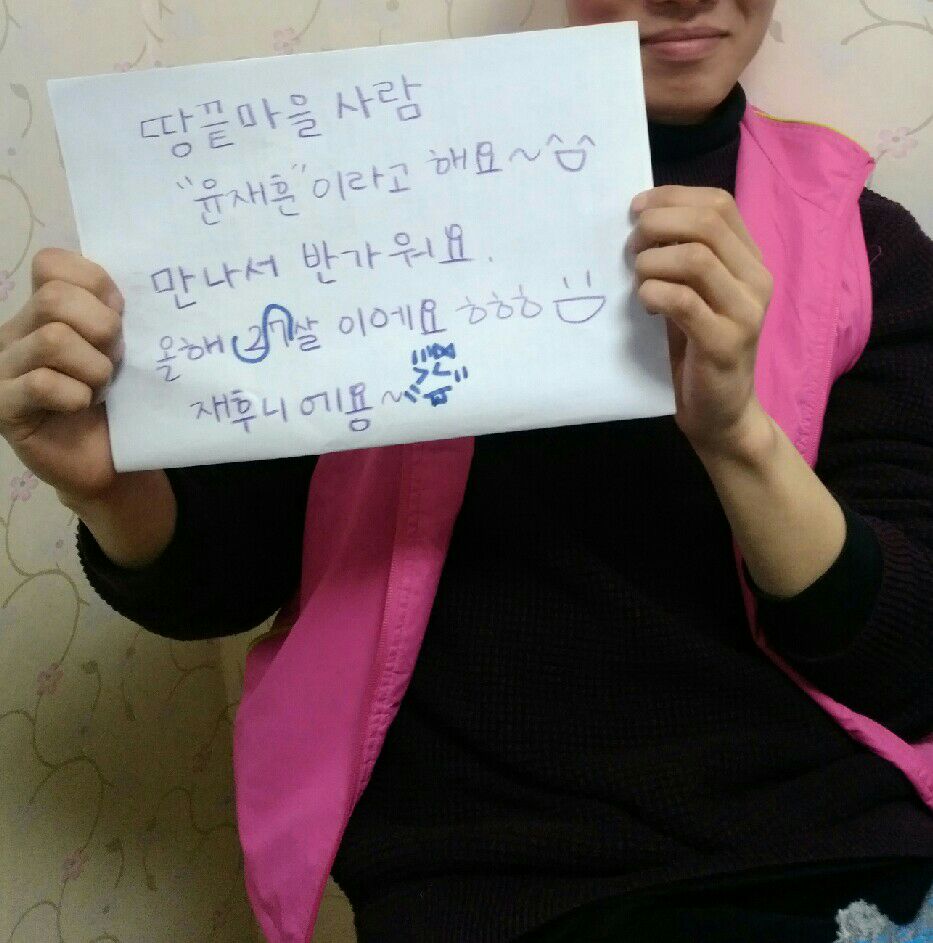 땅끝마을 사람
"윤재훈"이라고 해요~^^
만나서 반가워요.
올해 27살 이에요 ㅎㅎㅎ
재후니에용~